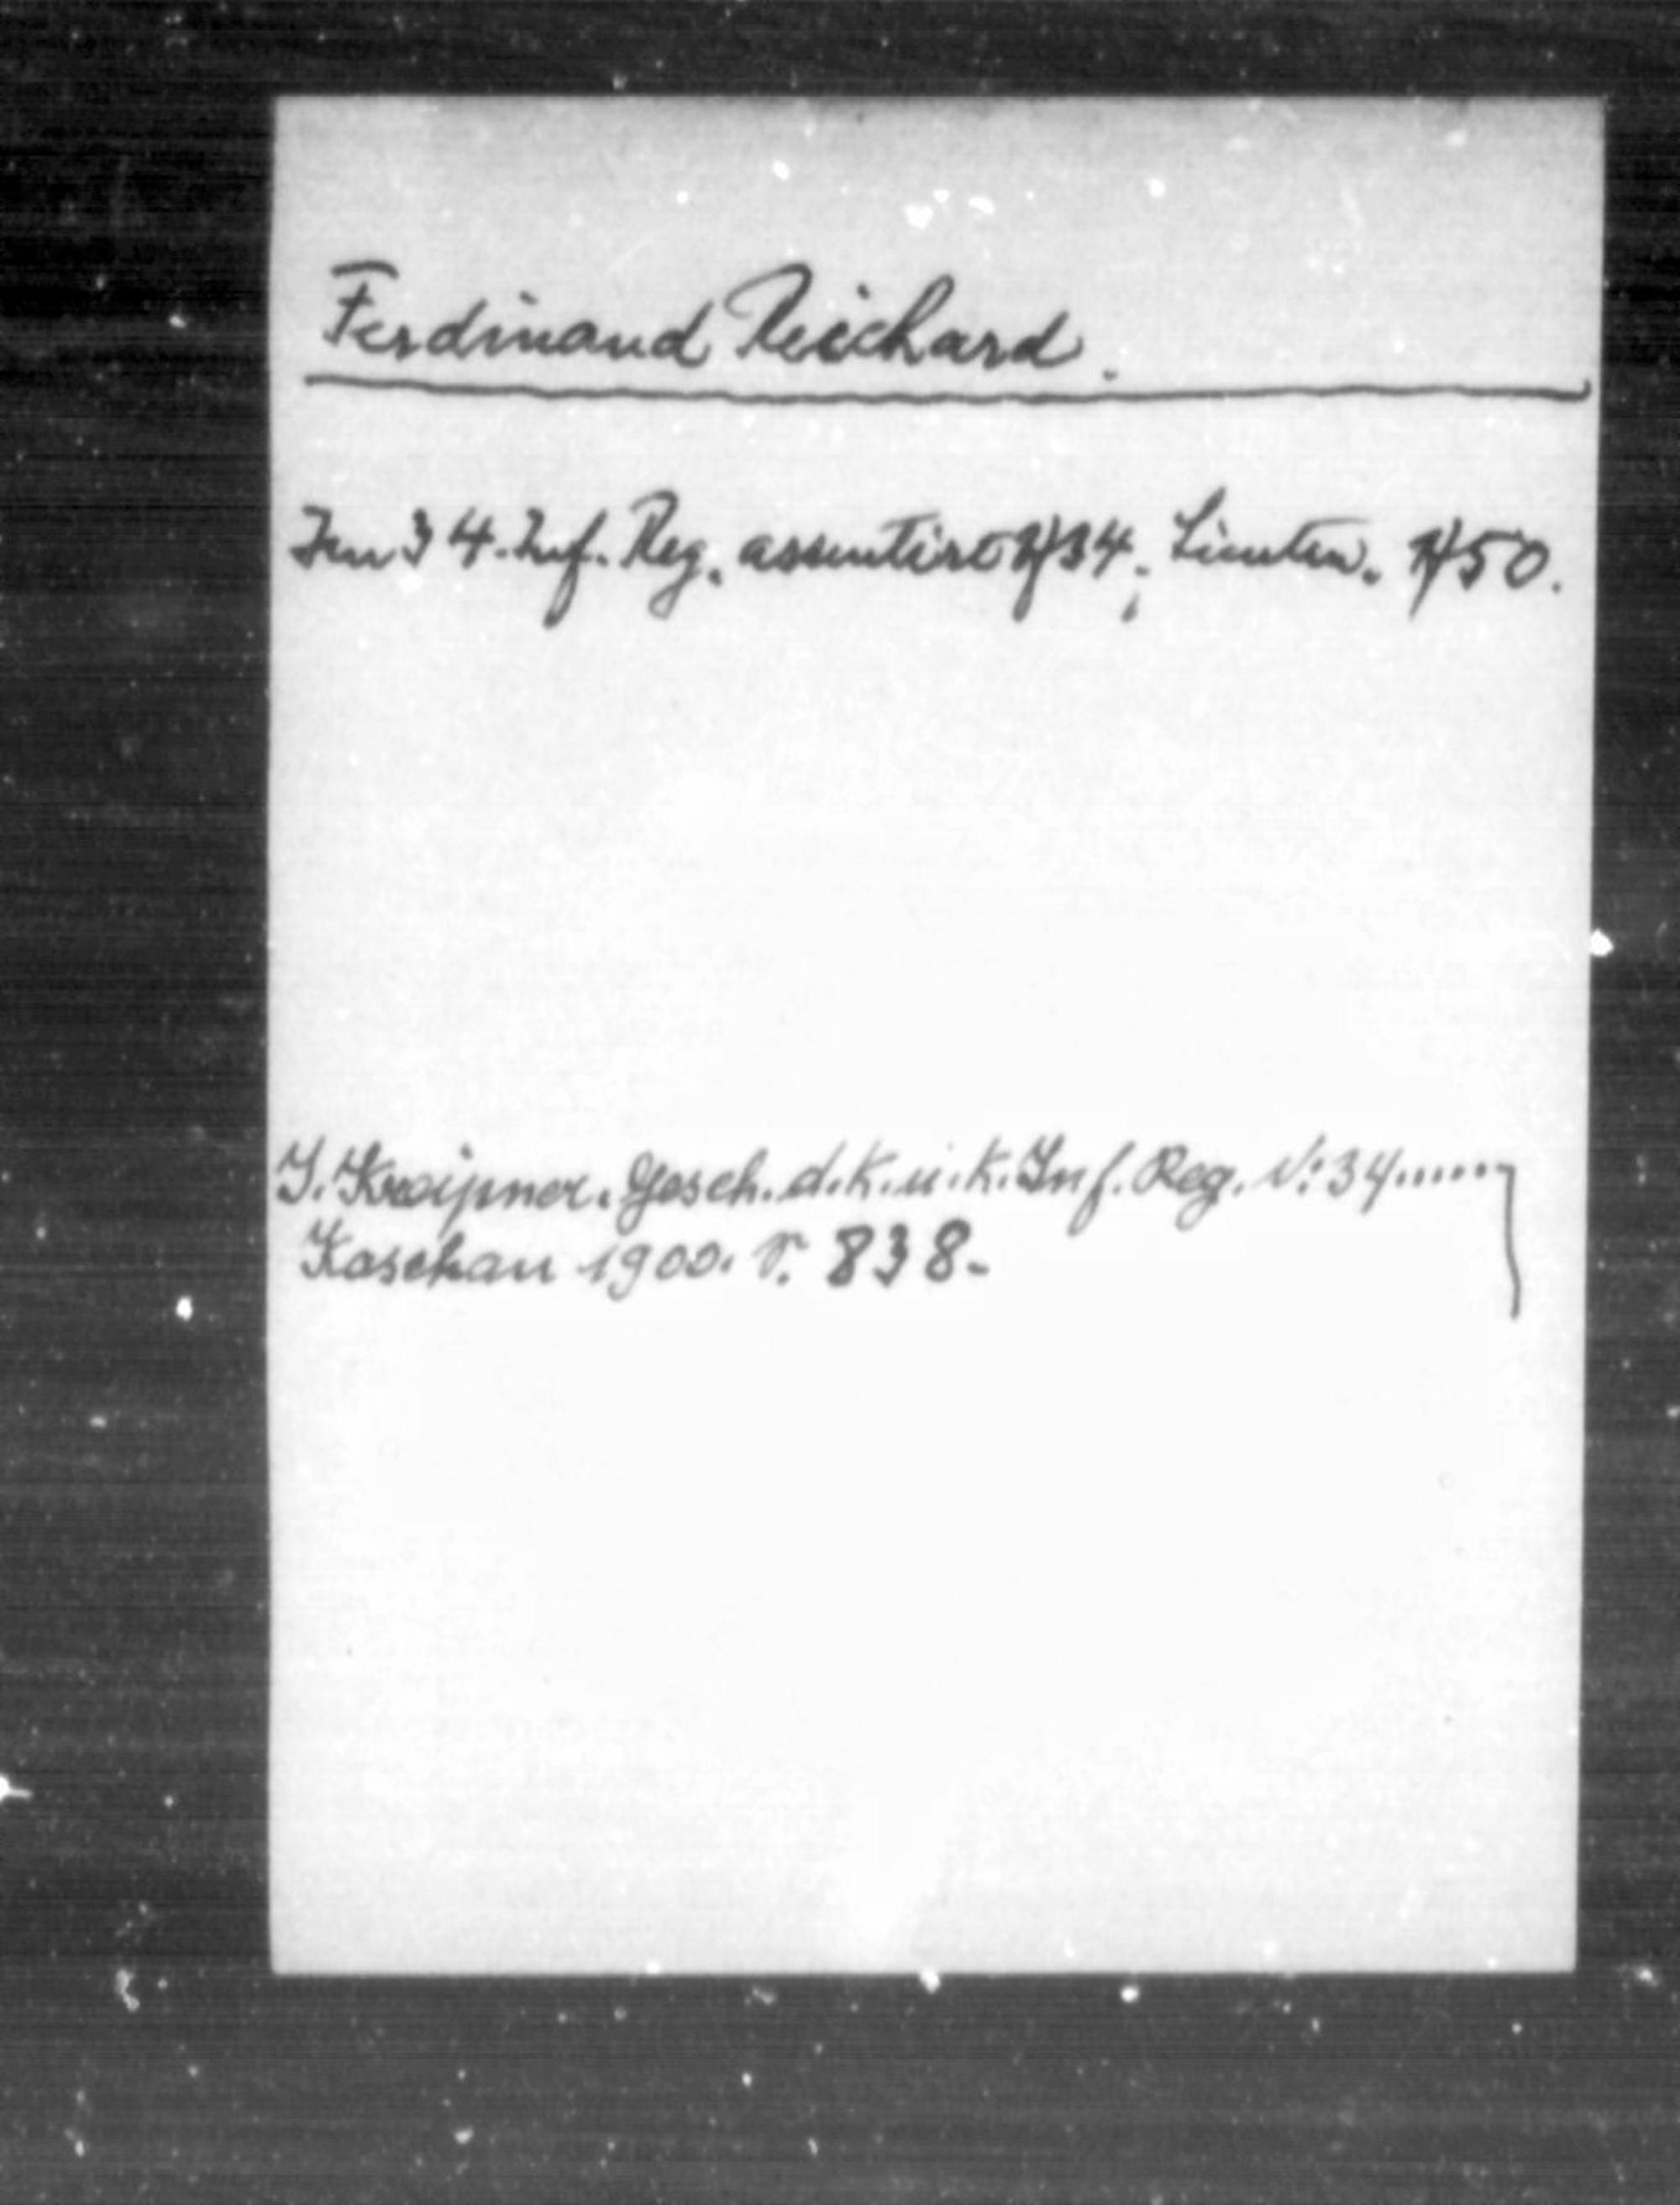 Ferdinand Reichard.
Im 34. Inf. Reg. assentirt 1/34; Lieuten. 1/50.
J. Kreipner. Gesch. d. k. u. k. Inf. Reg. N: 34......
Kaschau 1900. P. 838-